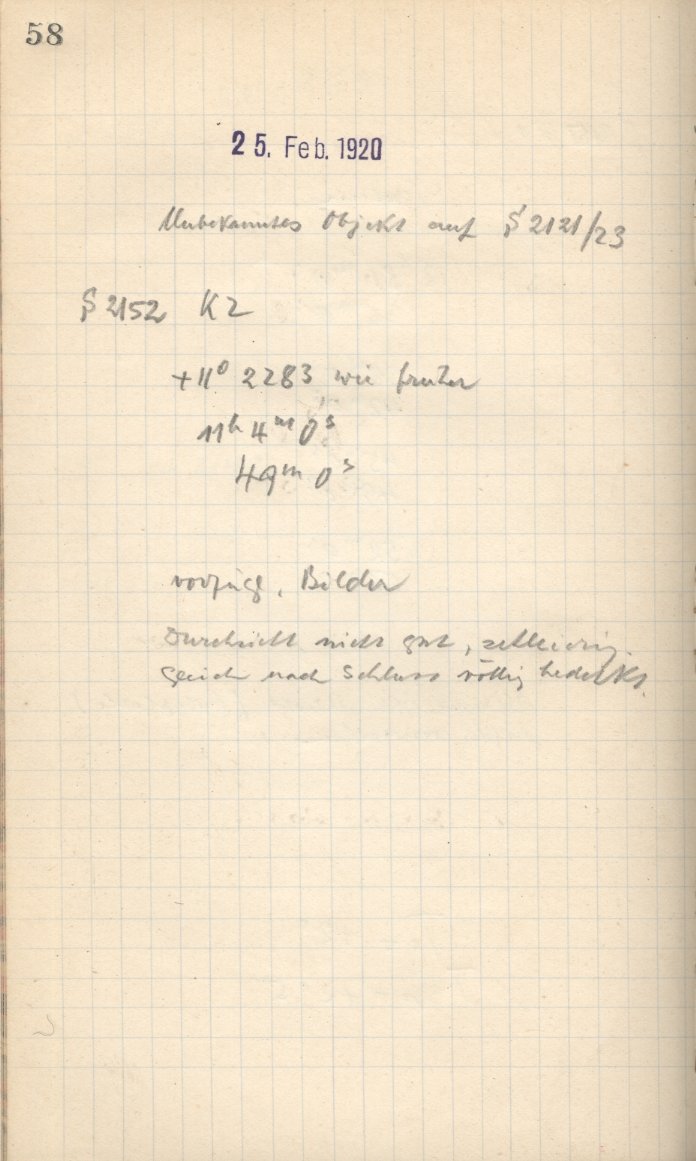 58
25. Feb. 1920
Unbekanntes Objekt auf § 2121/23
§ 2152 K2
+11° 2283 wie früher
11h 4m 0s
49m 0s
vorzügl. Bilder
Durchsicht nicht gut, schleierig.
Gleich nach Schluss völlig bedeckt.